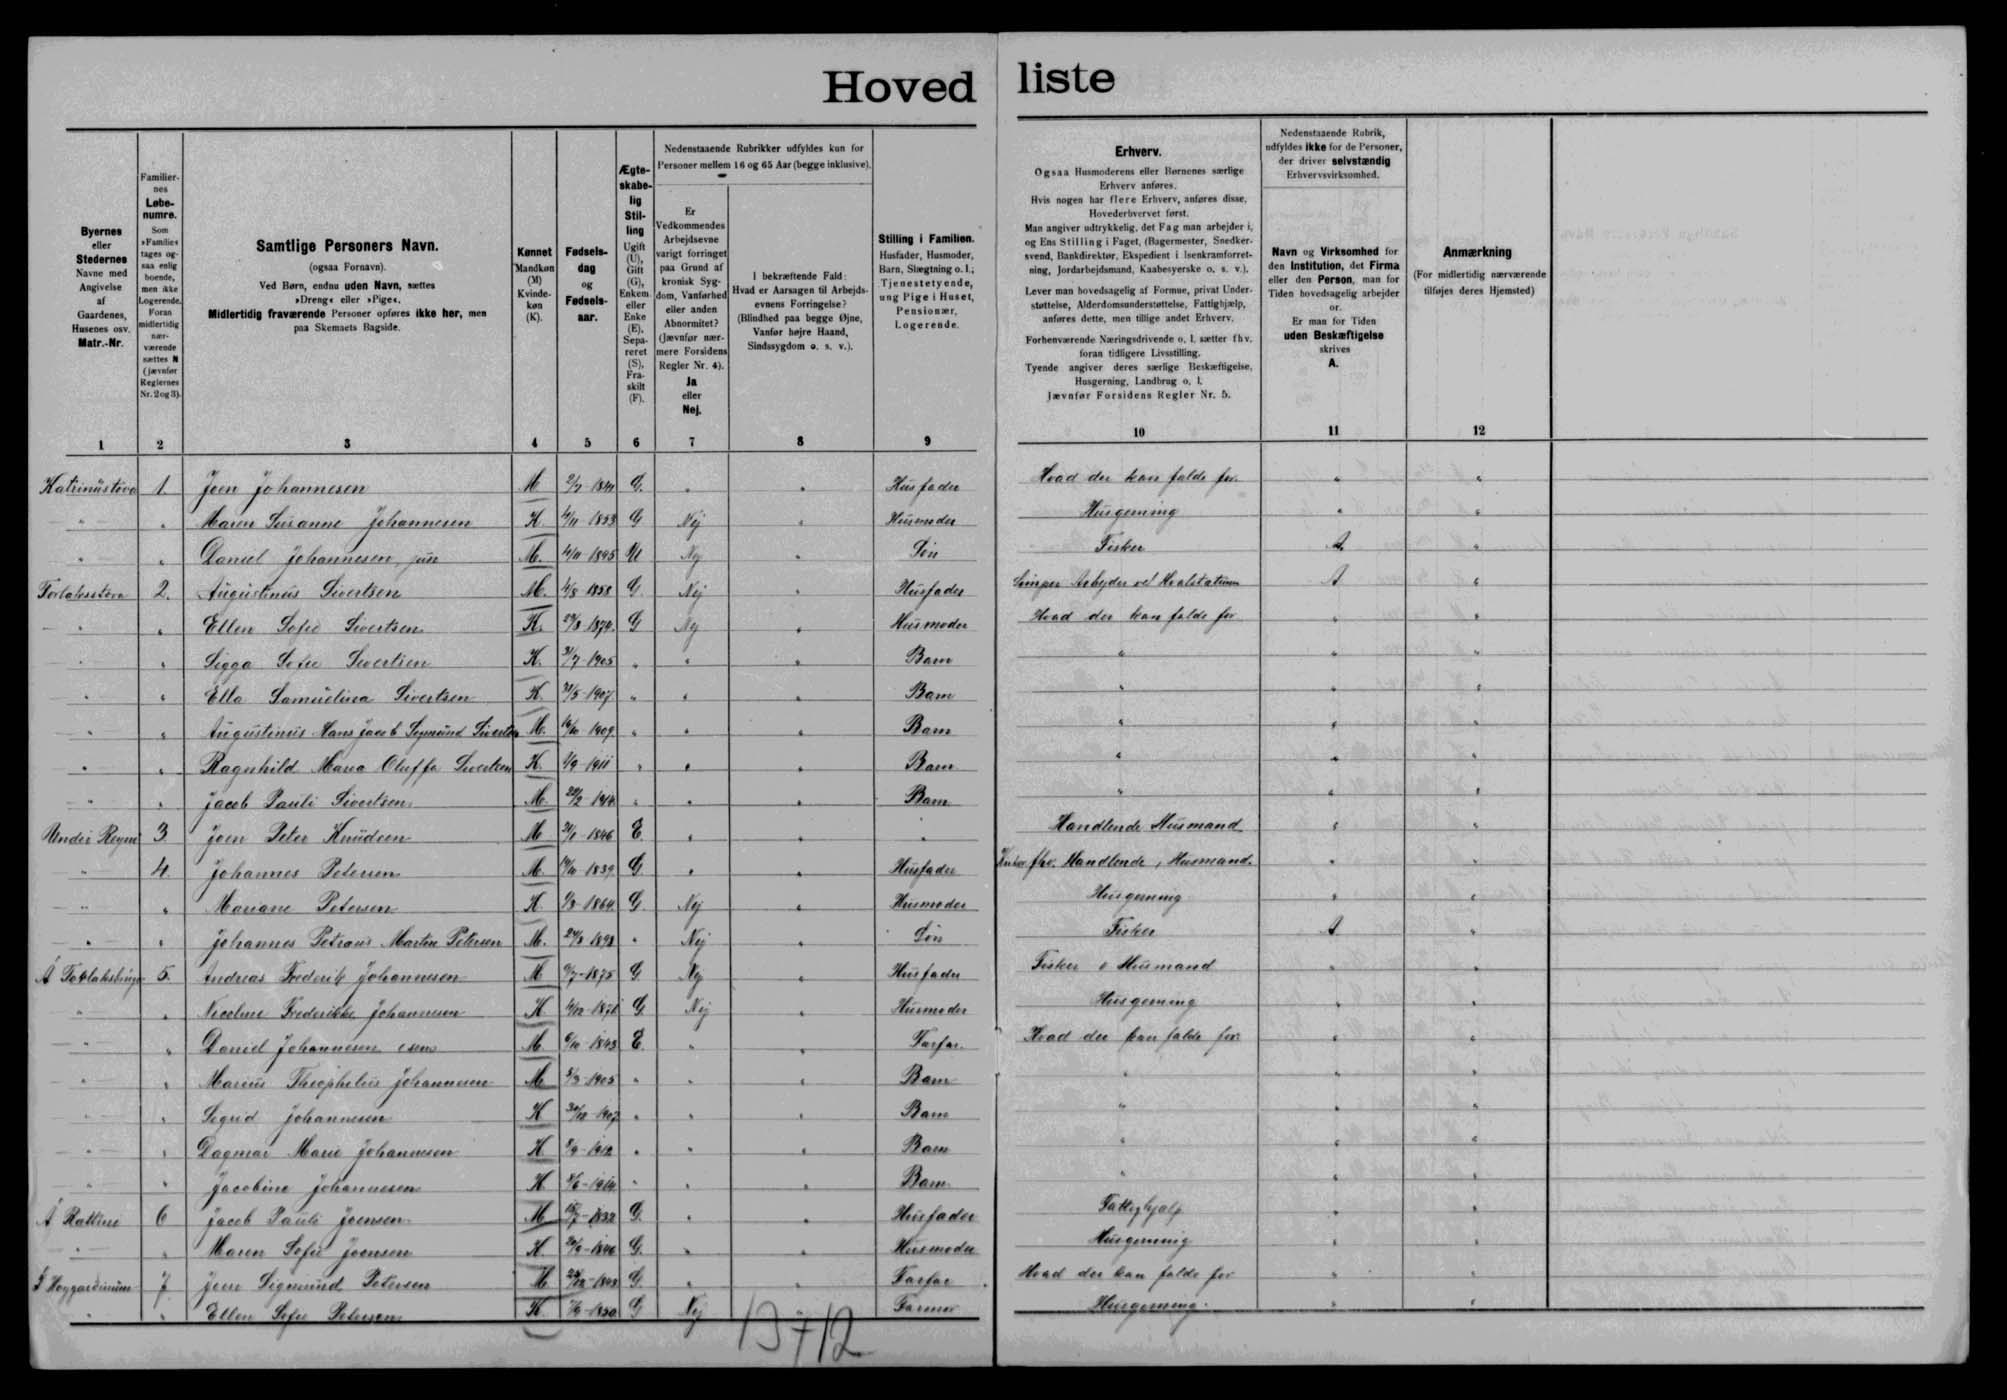 Hovedliste
Byernes eller Stedernes Navne med Angivelse af Gaardenes, Husenes osv. Matr.-Nr.
Familiernes Løbenumre. Som »Familie« tages ogsaa enlig boende, men ikke Logerende. Foran midlertidig nærværende sættes N (jævnfør Reglernes Nr. 2 og 3).
Samtlige Personers Navn.
(ogsaa Fornavn).
Ved Børn, endnu uden Navn, sættes »Dreng« eller »Pige«.
Midlertidig fraværende Personer opføres ikke her, men paa Skemaets Bagside.
Kønnet Mandkøn (M) Kvindekøn (K).
Fødselsdag og Fødselsaar.
Ægteskabelig Stilling Ugift (U), Gift (G), Enkem. eller Enke (E), Separeret (S), Fraskilt (F).
Nedenstaaende Rubrikker udfyldes kun for Personer mellem 16 og 65 Aar (begge inklusive).
Er Vedkommendes Arbejdsevne varigt forringet paa Grund af kronisk Sygdom, Vanførhed eller anden Abnormitet? (Jævnfør nærmere Forsidens Regler Nr. 4). Ja eller Nej.
I bekræftende Fald: Hvad er Aarsagen til Arbejdsevnens Forringelse? (Blindhed paa begge Øjne, Vanfør højre Haand, Sindssygdom o. s. v.).
Stilling i Familien. Husfader, Husmoder, Barn, Slægtning o. l.; Tjenestetyende, ung Pige i Huset, Pensionær, Logerende.
Erhverv.
Ogsaa Husmoderens eller Børnenes særlige Erhverv anføres.
Hvis nogen har flere Erhverv, anføres disse, Hovederhvervet først.
Man angiver udtrykkelig, det Fag man arbejder i, og Ens Stilling i Faget, (Bagermester, Snedkersvend, Bankdirektør, Ekspedient i Isenkramforretning, Jordarbejdsmand, Kaabesyerske o. s. v.).
Lever man hovedsagelig af Formue, privat Understøttelse, Alderdomsunderstøttelse, Fattighjælp, anføres dette, men tillige andet Erhverv.
Forhenværende Næringsdrivende o. l. sætter fhv. foran tidligere Livsstilling.
Tyende angiver deres særlige Beskæftigelse, Husgerning, Landbrug o. l.
Jævnfør Forsidens Regler Nr. 5.
Nedenstaaende Rubrik, udfyldes ikke for de Personer, der driver selvstændig Erhvervsvirksomhed.
Navn og Virksomhed for den Institution, det Firma eller den Person, man for Tiden hovedsagelig arbejder or.
Er man for Tiden uden Beskæftigelse skrives A.
Anmærkning
(For midlertidig nærværende tilføjes deres Hjemsted)
1 2 3 4 5 6 7 8 9 10 11 12
Katrinustova 1. Joen Johannesen M 2/7 1841 G. " " Husfader Hvad der kan falde for. " "
" " Maren Susanne Johannesen K. 4/11 1853 G Nej " Husmoder Husgerning " "
" " Daniel Johannesen, jun M. 4/11 1895 U Nej " Søn Fisker A "
2. Augustinus Sivertsen M. 4/8 1858 G. Nej " Husfader Arbejder ved Hvalstation A "
" " Ellen Sofie Sivertsen K. 29/8 1874. G Nej " Husmoder Hvad der kan falde for " "
" " Sigga Sofie Sivertsen K. 31/7 1905 " " " Barn " " "
" " Ella Samueline Sivertsen K. 31/5 1907. " " " Barn " " "
" " Augustinus Hans Jacob Sigmund Sivertsen M. 16/10 1909. " " " Barn " " "
" " Ragnhild Maria Oluffa Sivertsen K. 1/9 1911 " " " Barn " " "
" " Jacob Pauli Sivertsen M. 22/2 1914. " " " Barn " " "
Undir Reyni 3. Joen Peter Knudsen M 31/1 1846 E. " " " Handlende Husmand " "
" 4. Johannes Petersen M. 14/10 1839. G. " " Husfader fhv. Handlende, Husmand. " "
" " Mariane Petersen K. 1/3 1864. G. Nej " Husmoder Husgerning " "
" " Johannes Petraus Martin Petersen M. 24/8 1898 " Nej " Søn Fisker A "
5. Andreas Frederik Johannesen M 9/7 1875 G. Nej " Husfader Fisker o Husmand " "
" " Nicoline Frederikke Johannesen K 4/12 1878 G. Nej " Husmoder Husgerning " "
" " Daniel Johannesen sen. M. 6/10 1843 E. " " Farfar. Hvad der kan falde for. " "
" " Marius Theophelius Johannesen M 5/3 1905 " " " Barn " " "
" " Sigrid Johannesen K 30/12 1907 " " " Barn " " "
" " Dagmar Marie Johannesen K 8/9 1912 " " " Barn " " "
" " Jacobine Johannesen K 8/6 1914 " " " Barn " " "
6 Jacob Pauli Joensen M 1832 G. " " Husfader Fattighjælp " "
" " Maren Sofie Joensen K. 20/9 1846 G. " " Husmoder Husgerning " "
7 Joen Sigmund Petersen M. 25/12 1848 G. " " Farfar Hvad der kan falde for " "
" " Ellen Sofie Petersen K 1850 G Nej " Farmor Husgerning. " "
13+12